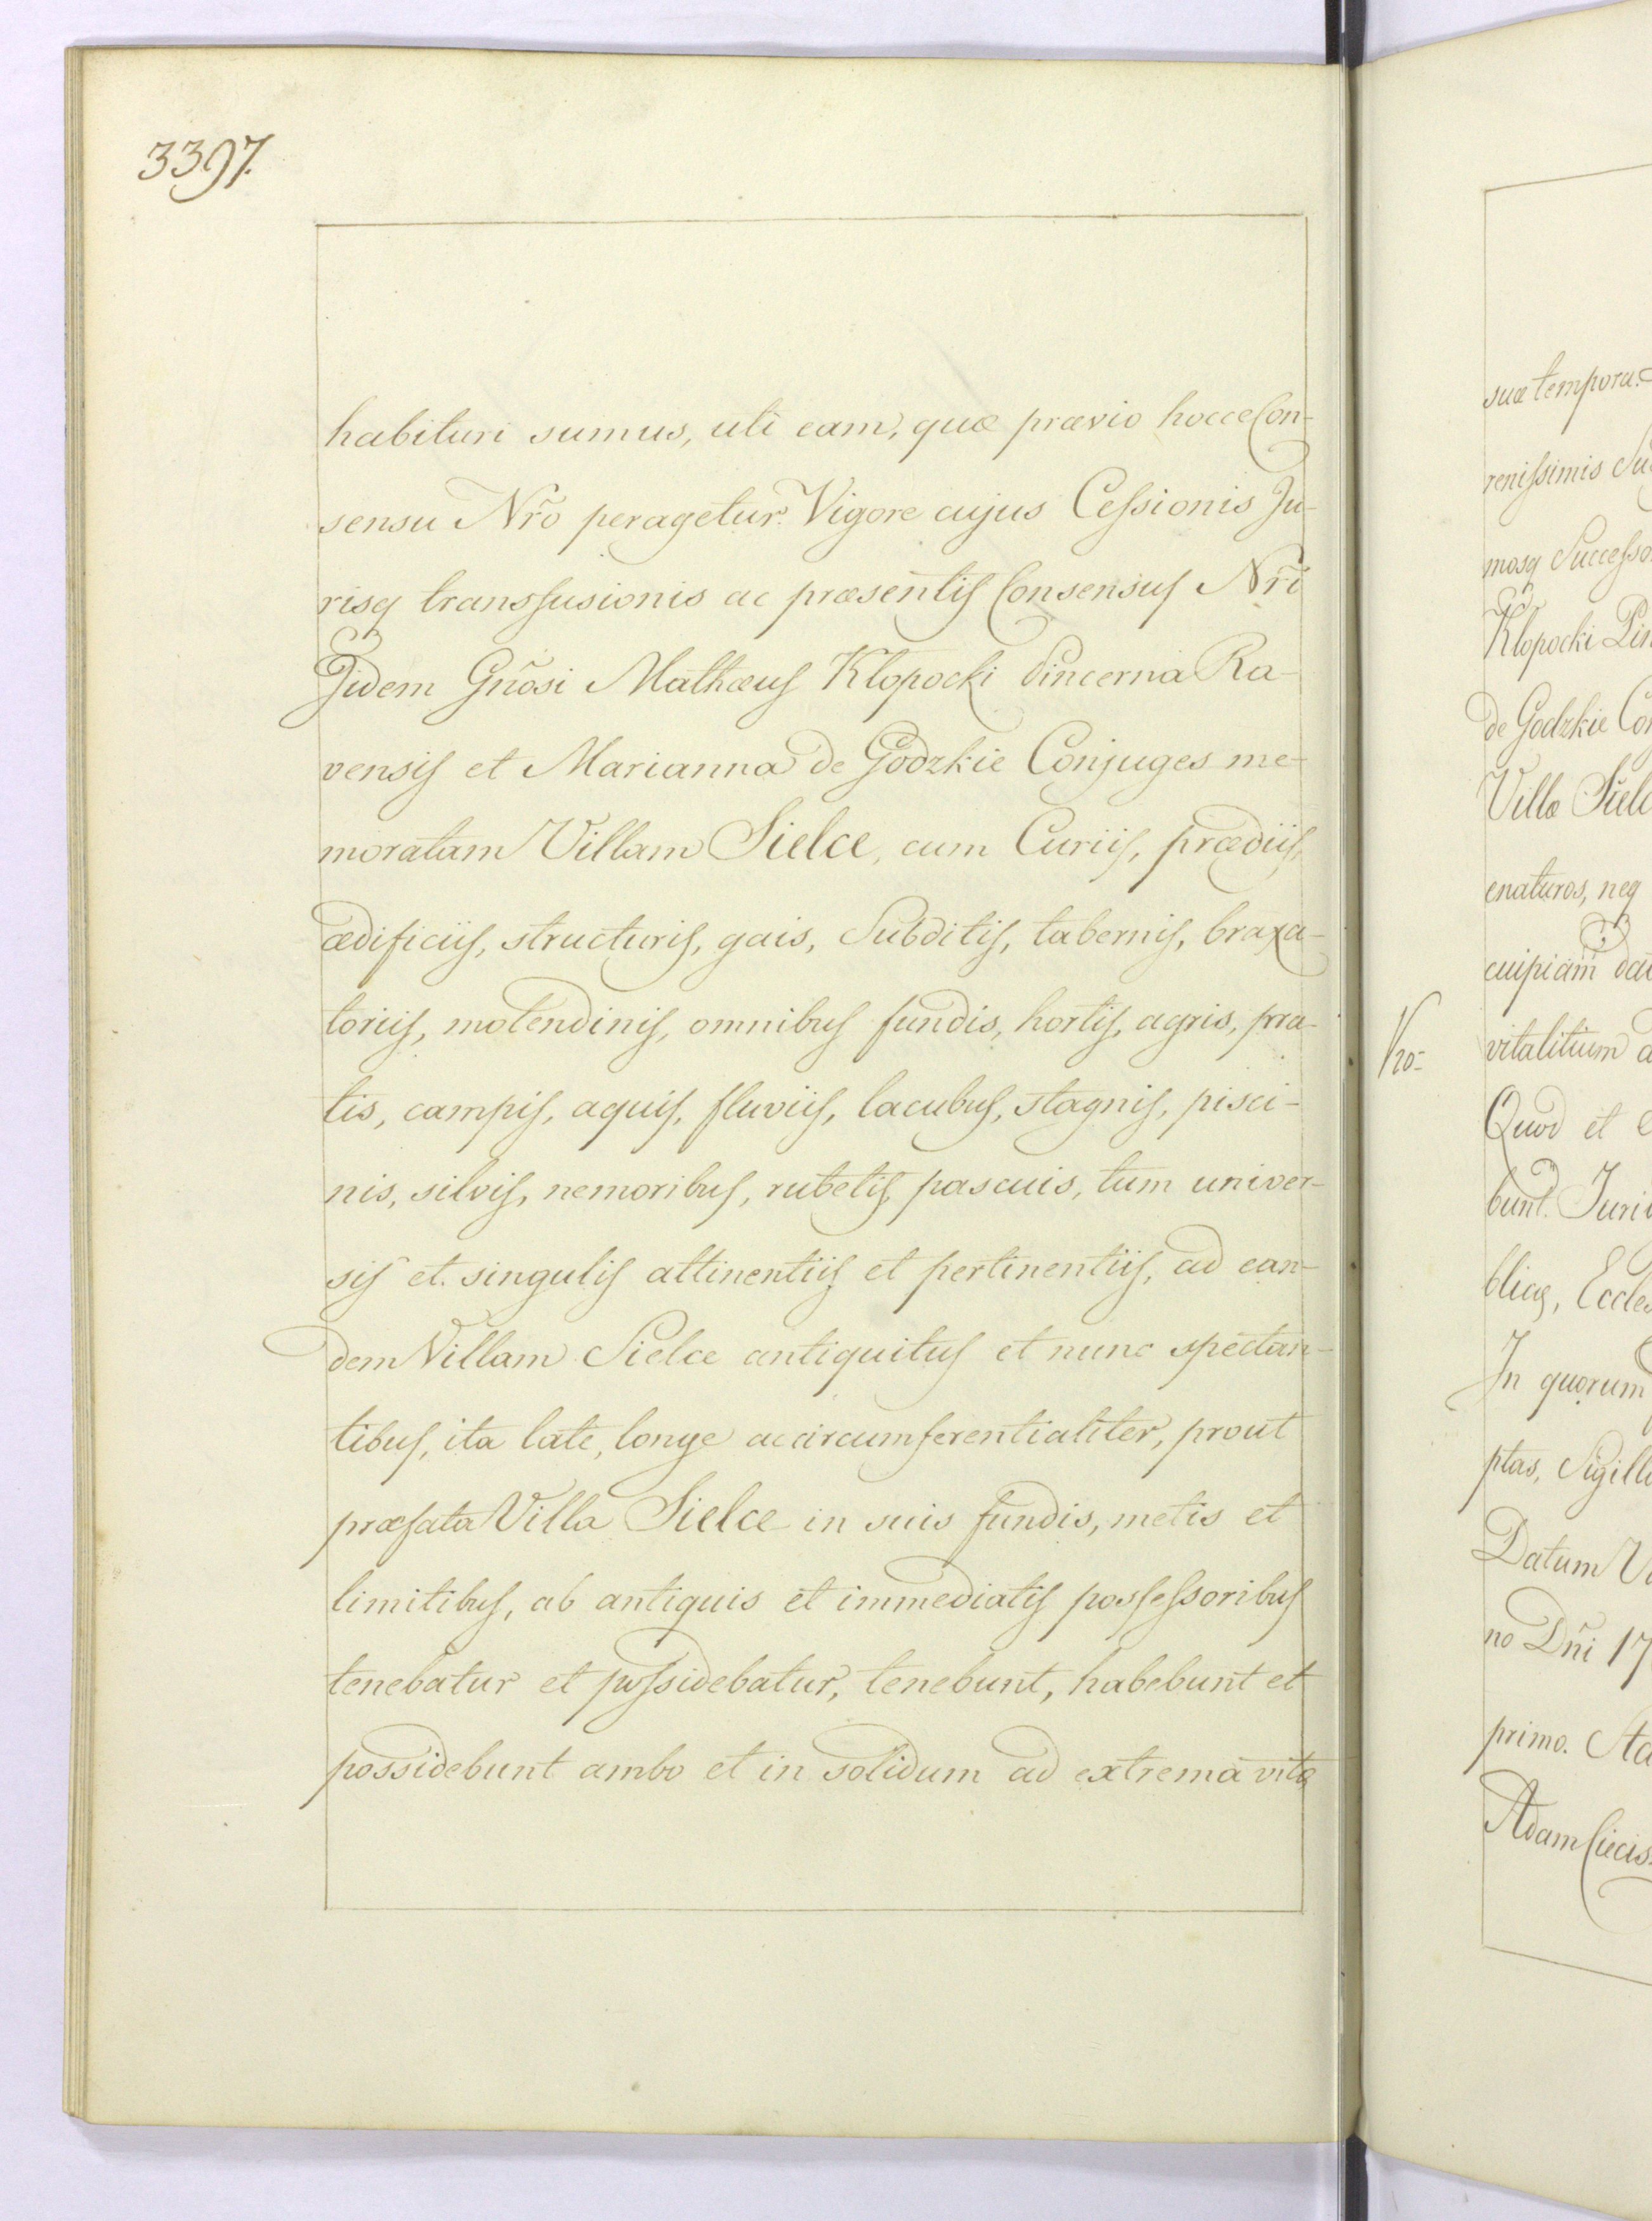 3397.
habituri sumus, uti eam, quæ prævio hocce Con-
sensu Nr̃o peragetur. Vigore cujus Cessionis Ju-
risq transfusionis ac præsentis Consensus Nr̃i
Jidem Gñosi Mathæus Kłopocki Pincerna Ra-
vensis et Marianna de Godzkie Conjuges me-
moratam Villam Sielce, cum Curiis, prædiis,
ædificiis, structuris, gais, Subditis, tabernis, braxa-
toriis, molendinis, omnibus fundis, hortis, agris, pra-
tis, campis, aquis, fluviis, lacubus, stagnis, pisci-
nis, silvis, nemoribus, rubetis, pascuis, tum univer-
sis et singulis attinentiis et pertinentiis, ad ean-
dem Villam Sielce antiquitus et nunc spectan-
tibus, ita late, longe ac circumferentialiter, prout
præfata Villa Sielce in suis fundis, metis et
limitibus, ab antiquis et immediatis possessoribus
tenebatur et possidebatur, tenebunt, habebunt et
possidebunt ambo et in solidum ad extrema vitæ
suæ tempora.
renissimis Su
mosq Successo
Kłopocki Pin
de Godzkie Con
Villæ Siel
enaturos, neq
cuipiam da
vitalitium a
Quod et
bunt. Juri
blicæ, Eccles
In quorum
ptas, Sigill
Datum V
no Dñi 17
primo. Sta
Adam Ciecis